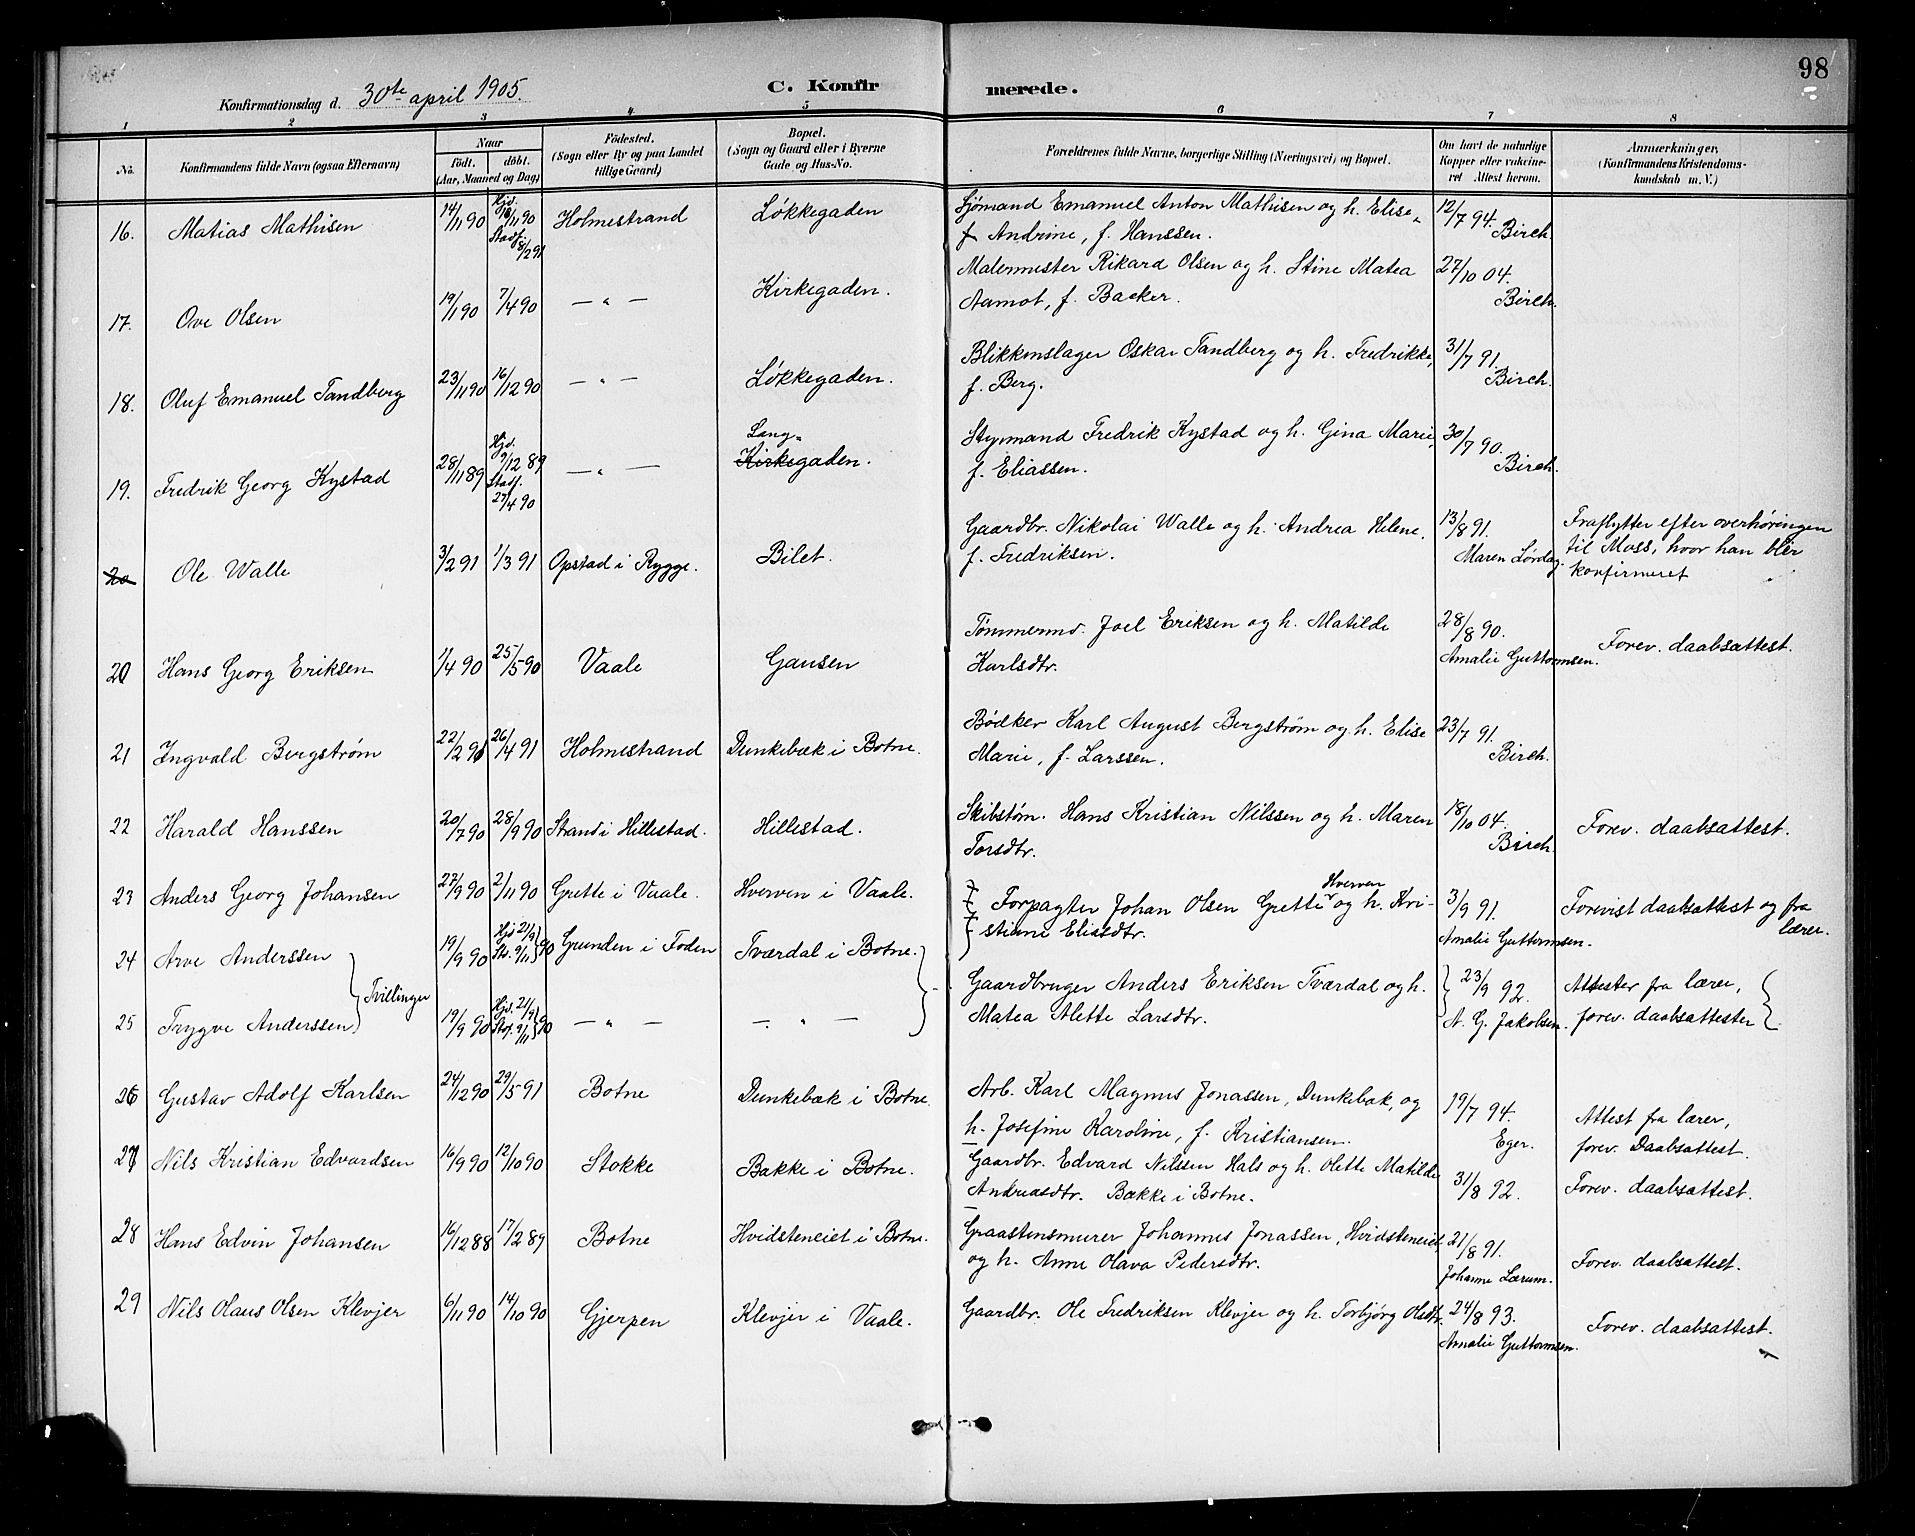 98
Konfirmationsdag d. 30te april 1905.
C. Konfirmerede.
1 2 3 4 5 6 7 8
No.
Konfirmandens fulde Navn (ogsaa Efternavn)
Naar
födt. döbt.
(Aar, Maaned og Dag)
Födested.
(Sogn eller By og paa Landet
tillige Gaard)
Bopæl.
(Sogn og Gaard eller i Byerne
Gade og Hus-No.
Forældrenes fulde Navne, borgerlige Stilling (Næringsvei) og Bopæl.
Om havt de naturlige
Kopper eller vakcine-
ret Attest herom.
Anmærkninger,
(Konfirmandens Kristendoms-
kundskab m. V.)
16. Matias Mathisen 14/11 90 Hjd. 18/11 90 Stadf. 8/2 91 Holmestrand Løkkegaden
Sjømand Emanuel Anton Mathisen og h. Elise
Andrine, f. Hanssen.
12/7 94. Birch.
17. Ove Olsen 19/1 90 7/4 90 — „ — Kirkegaden.
Malermester Rikard Olsen og h. Stine Matea
Aamot, f. Backer.
27/10 04. Birch.
18. Oluf Emanuel Tandberg 23/11 90 16/12 90 — „ — Løkkegaden.
Blikkenslager Oskar Tandberg og h. Fredrikke,
f. Berg.
31/7 91. Birch.
19. Fredrik Georg Kystad 28/11 89 Hjd. 9/12 89 Stadf. 27/4 90 — „ — Lang- Kirkegaden.
Styrmand Fredrik Kystad og h. Gina Marie,
f. Eliassen.
30/7 90. Birch.
20 Ole Walle 3/2 91 1/3 91 Opstad i Rygge. Bilet.
Gaardbr. Nikolai Walle og h. Andrea Helene,
f. Fredriksen.
13/8 91. Maren Lørdag.
Fraflytter efter overhøringen
til Moss, hvor han blir
konfirmeret
20 Hans Georg Eriksen 1/4 90 25/5 90 Vaale Gausen
Tømmermd. Joel Eriksen og h. Matilde
Karlsdtr.
28/8 90. Amalie Guttormsen.
Forev. daabsattest.
21 Ingvald Bergstrøm 22/2 91 26/4 91 Holmestrand Dunkebæk i Botne.
Bødker Karl August Bergstrøm og h. Elise
Marie, f. Larssen.
23/7 91. Birch.
22 Harald Hanssen 20/7 90 28/9 90 Strand i Hillestad. Hillestad.
Skibstøm. Hans Kristian Nilssen og h. Maren
Torsdtr.
18/10 04. Birch
Forev. daabsattest.
23 Anders Georg Johansen 27/9 90 2/11 90 Grette i Vaale. Hverven i Vaale.
Forpagter Johan Olsen Grette Hverven og h. Kri-
stiane Eliasdtr.
3/9 91. Amalie Guttormsen.
Forevist daabsattest og fra
lærer.
24 Arve Anderssen 19/9 90 Hjd 21/9 Sta. 9/11 } 90 Grunden i Foden Tværdal i Botne.
Tvillinger
Gaardbruger Anders Eriksen Tværdal og h.
Matea Alette Larsdtr.
23/9 92. A. G. Jakobsen.
Attester fra lærer,
forev. daabsattester
25 Trygve Anderssen 19/9 90 Hjd. 21/9 Staf. 9/11 } 90 — „ — — „ —
26 Gustav Adolf Karlsen 24/12 90 29/5 91 Botne Dunkebæk i Botne.
Arb. Karl Magnus Jonassen, Dunkebæk, og
h. Josefine Karoline, f. Kristiansen.
19/7 94. Eger.
Attest fra lærer,
forev. Daabsattest.
27 Nils Kristian Edvardsen 16/9 90 12/10 90 Stokke Bakke i Botne.
Gaardbr. Edvard Nilssen Hals og h. Olette Matilde
Andreasdtr. Bakke i Botne.
31/8 92.
Forev. daabsattest.
28 Hans Edvin Johansen 16/12 88 17/2 89 Botne Hvidsteneiet i Botne.
Graastensmurer Johannes Jonassen, Hvidsteneiet,
og h. Anne Olava Pedersdtr.
21/8 91. Johanne Lærum.
Forev. daabsattest.
29 Nils Olaus Olsen Klevjer 6/11 90 14/10 90 Gjerpen Klevjer i Vaale.
Gaardbr. Ole Fredriksen Klevjer og h. Torbjørg Olsdtr.
24/8 93. Amalie Guttormsen.
Forev. daabsattest.